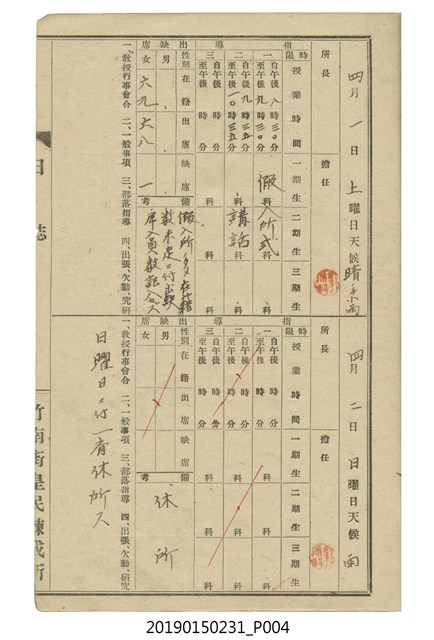 四月一日土曜日天候晴
所長
擔任
指導
時限
授業時間
一期生
二期生
三期生
一
自午後八時三〇分
至午後九時三〇分
科
科
科
假入所式
二
自午後九時三五分
至午後一〇時三五分
科
科
科
講話
三
自午後 時 分
至午後 時 分
科
科
科
出缺席
性別
在籍
出席
缺席
備考
男
女
六九
六八
一
一、教授行事會合 二、一般事項 三、部落指導 四、出張、欠勤、研究
日誌
四月二日日曜日天候雨
所長
擔任
指導
時限
授業時間
一期生
二期生
三期生
一
自午後 時 分
至午後 時 分
科
科
科
二
自午後 時 分
至午後 時 分
科
科
科
三
自午後 時 分
至午後 時 分
科
科
科
出缺席
性別
在籍
出席
缺席
備考
男
女
休所
一、教授行事會合 二、一般事項 三、部落指導 四、出張、欠勤、研究
日曜日ニ付一齊休所ス
竹南街皇民鍊成所
20190150231_P004